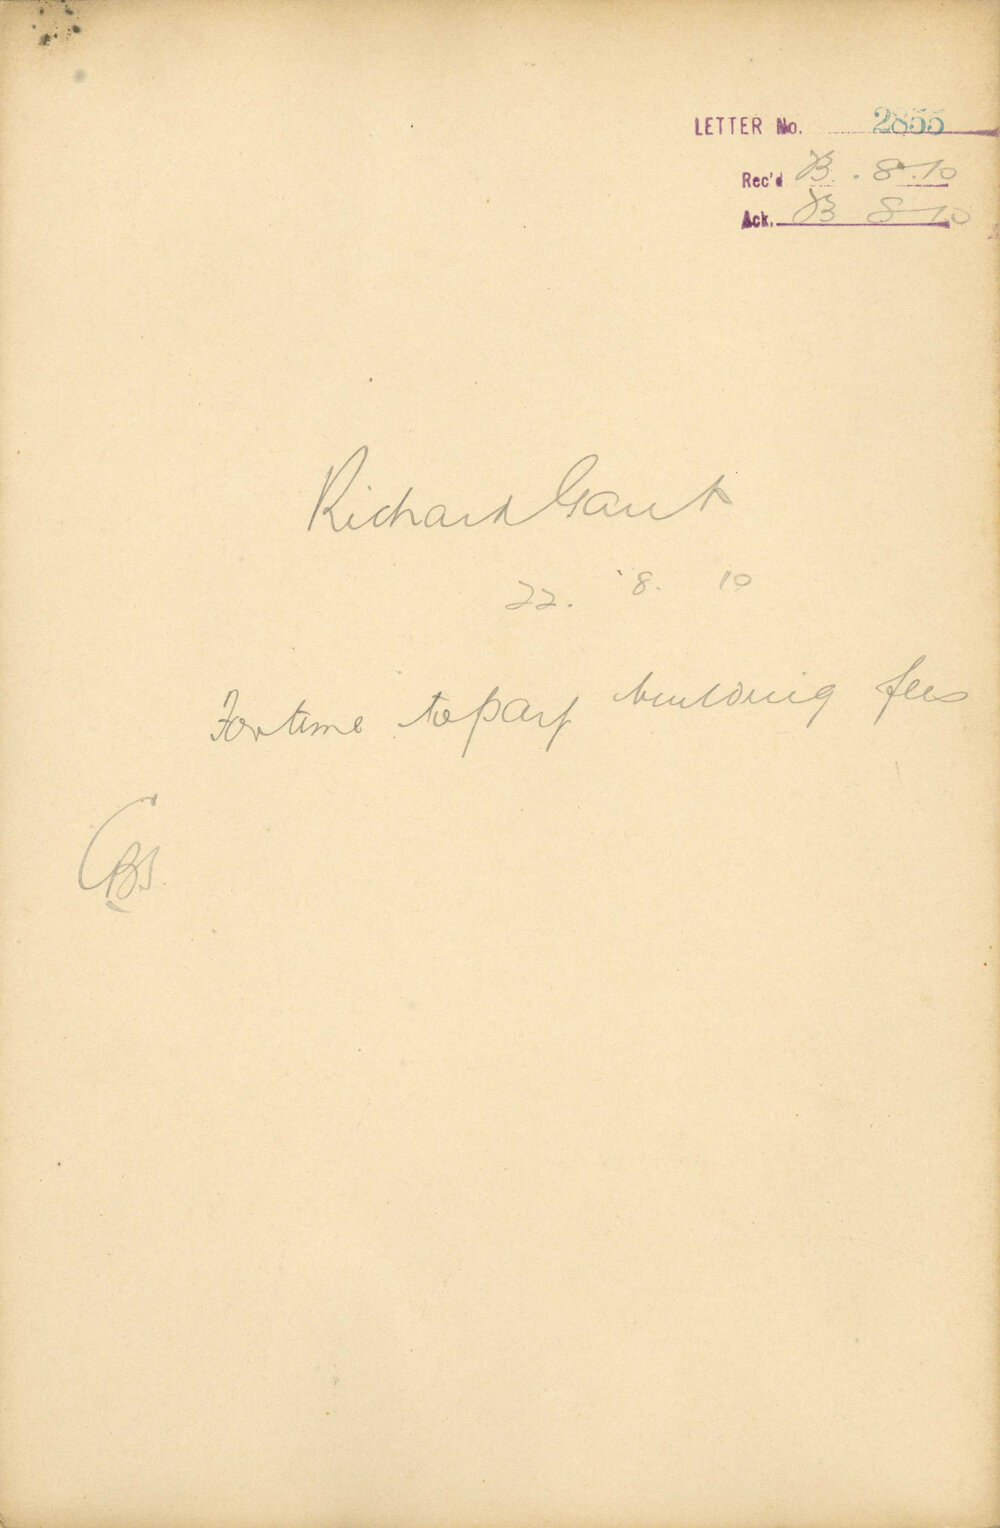 LETTER No. 2855
Rec'd . 8.10
Ack. 8 10
Richard Gaut
22. 8. 10
For time to pay building fees